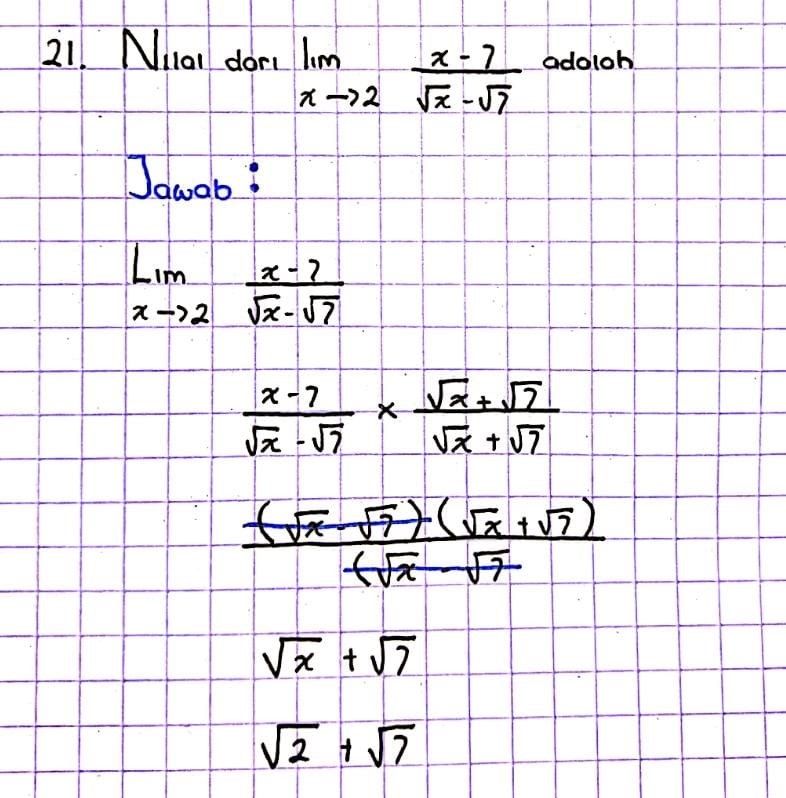 21. Nilai dari lim x - 7 adalah
x → 2 √x - √7
Jawab :
Lim x - 7
x → 2 √x - √7
x - 7 × √x + √7
√x - √7 √x + √7
(√x - √7) (√x + √7)
(√x - √7
√x + √7
√2 + √7